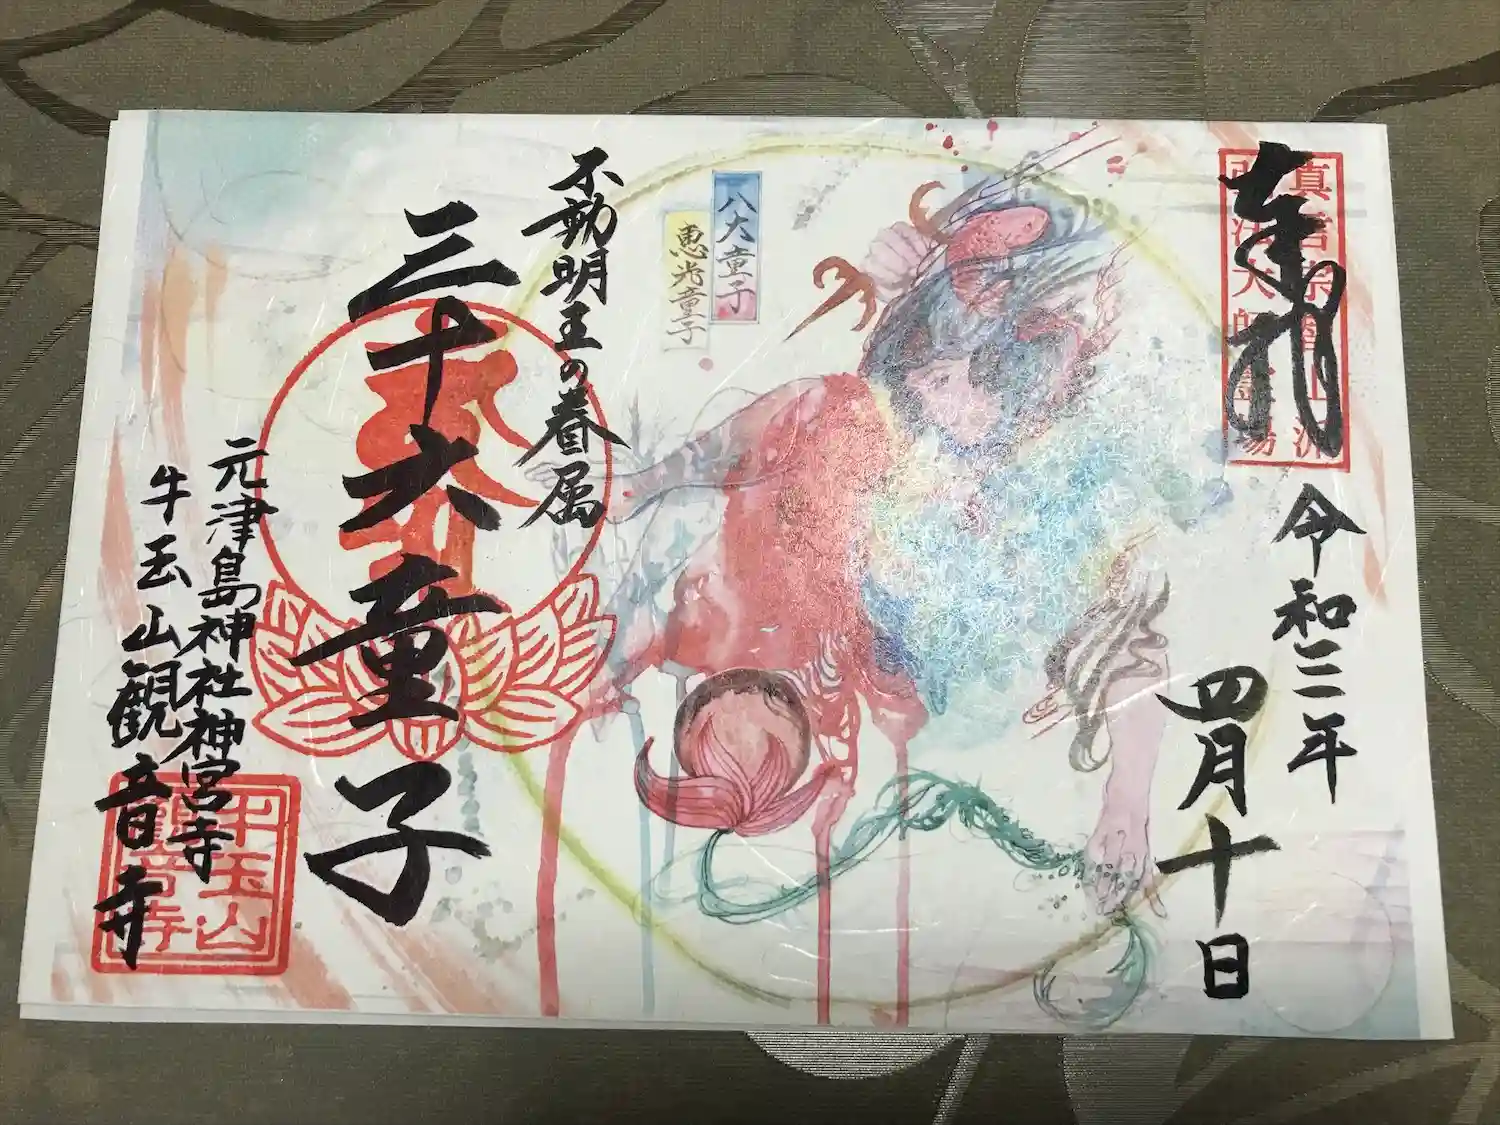 真言宗智山派
弘法大師霊場
奉拝
令和二年
四月十日
八大童子
恵光童子
不動明王の眷属
三十六童子
元津島神社神宮寺
牛玉山観音寺
牛玉山
觀音寺